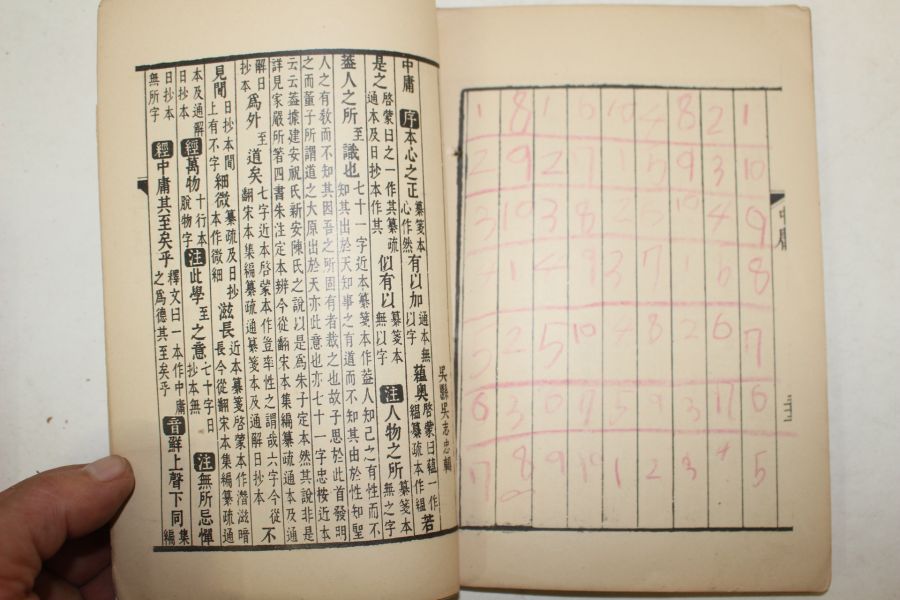 中庸 序 本心之正 纂箋本心作然 有以加 通本無以字 蘊奧 啓蒙曰蘊一作縕纂疏本作縕 若
是之 啓蒙曰之一作其纂疏通本及日抄本作其 似有以 纂箋本無以字 注 人物之所 纂箋本無之字
蓋人之所 至 識也 七十一字近本纂箋本作蓋人知己之有性而不知其出於天知事之有道而不知其由於性知聖
人之有敎而不知其因吾之所固有者裁之也故子思於此首發明
之而董子所謂道之大原出於天亦此意也亦七十一字忠桉近本
云云蓋據建安祝氏新安陳氏之說以是爲朱子定本然其說非是
詳見家嚴所著四書朱注定本辨今從翻宋本集編纂疏通本及通
解日抄本 爲外 至 道矣 七字近本啓蒙本作豈率性之謂哉六字今從翻宋本集編纂疏通纂箋本及通解日抄本 不
見聞 日抄本間上有不字 細微 纂疏及日抄本作微細 滋長 近本纂箋啓蒙本作潛滋暗長今從翻宋本集編纂疏通
本及通解日抄本 經 萬物 十行本脫物字 注 此學 至 之意 七十字日抄本無 注 無所忌憚
日抄本無所字 經 中庸其至矣乎 釋文曰一本作中庸之爲德其至矣乎 音 鮮上聲下同 集編
吳縣吳志忠輯
中庸
1 2 8 4 10 6 1 8 1
10 3 9 5 1 7 2 9 2
9 4 10 8 3 10 3
8 6 1 7 3 9 4 1 4
7 6 2 8 4 10 5 2 5
6 3 9 5 3 6
5 4 3 2 1 10 9 8 7